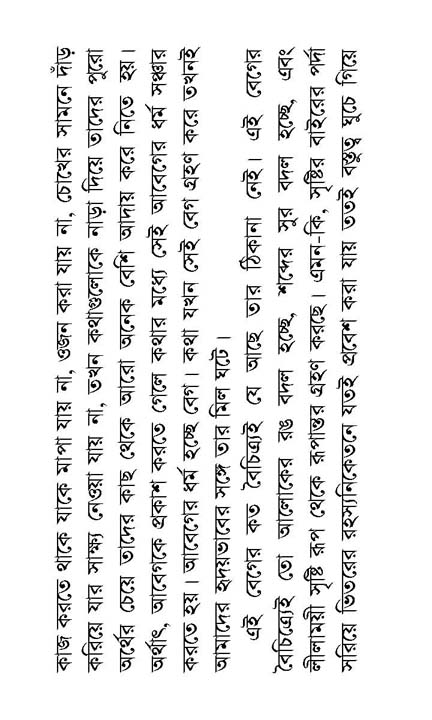 কাজ করতে থাকে যাকে মাপা যায় না, ওজন করা যায় না, চোখের সামনে দাঁড়
করিয়ে যার সাক্ষ্য নেওয়া যায় না, তখন কথাগুলোকে নাড়া দিয়ে তাদের পুরো
অর্থের চেয়ে তাদের কাছ থেকে আরো অনেক বেশি আদায় করে নিতে হয়।
অর্থাৎ, আবেগকে প্রকাশ করতে গেলে কথার মধ্যে সেই আবেগের ধর্ম সঞ্চার
করতে হয়। আবেগের ধর্ম হচ্ছে বেগ। কথা যখন সেই বেগ গ্রহণ করে তখনই
আমাদের হৃদয়ভাবের সঙ্গে তার মিল ঘটে।
এই বেগের কত বৈচিত্র্যই যে আছে তার ঠিকানা নেই। এই বেগের
বৈচিত্র্যেই তো আলোকের রঙ বদল হচ্ছে, শব্দের সুর বদল হচ্ছে, এবং
লীলাময়ী সৃষ্টি রূপ থেকে রূপান্তর গ্রহণ করছে। এমন-কি, সৃষ্টির বাইরের পর্দা
সরিয়ে ভিতরের রহস্যনিকেতনে যতই প্রবেশ করা যায় ততই বস্তুত্ব ঘুচে গিয়ে